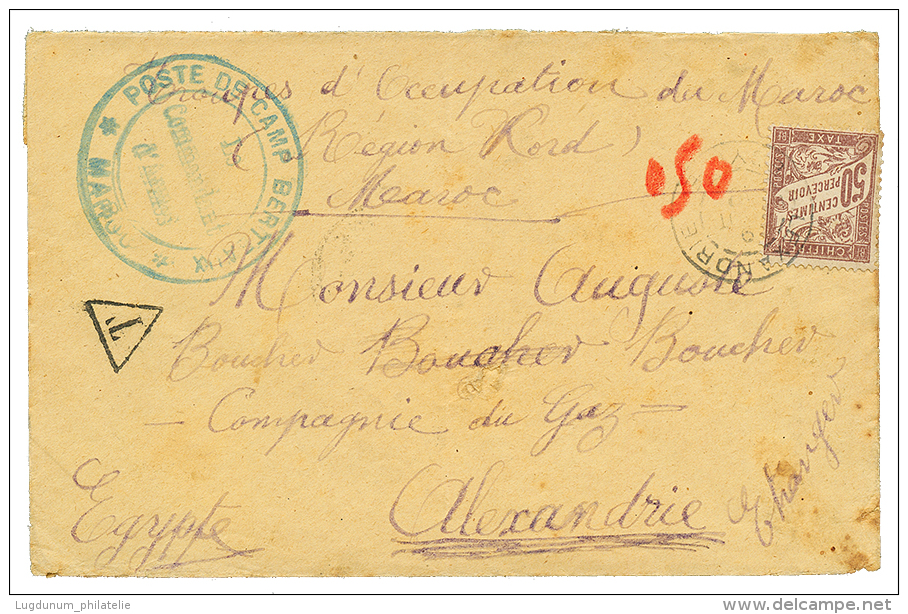 Troupes d'Occupation du Maroc
(Région Nord)
Maroc
* POSTE DE CAMP BERTEAUX *
MAROC
Le
Commandant
d'Armes
050
ALEXANDRIE
50
CENTIMES
À PERCEVOIR
POSTES
CHIFFRE
TAXE
T
Monsieur Auguste
Boucher Boucher Boucher
- Compagnie du Gaz -
Alexandrie
Egypte
Etranger
Lugdunum_philatelie
www.delcampe.net